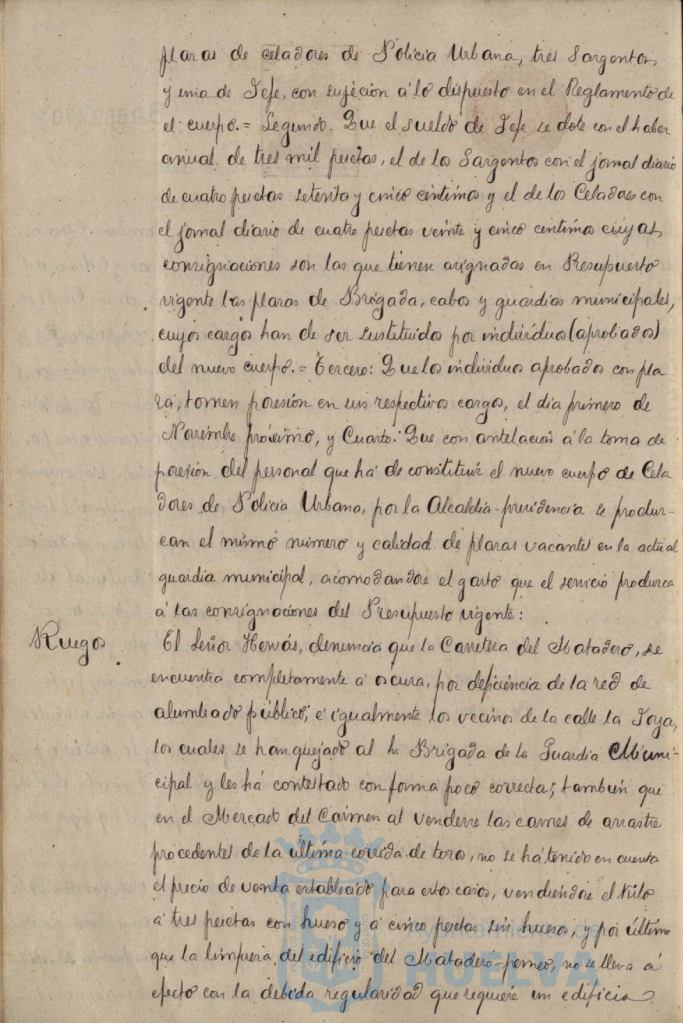 plazas de celadores de Policia Urbana, tres Sargentos,
y una de Jefe, con sujeción á lo dispuesto en el Reglamento de
el cuerpo.= Segundo. Que el sueldo de Jefe se dote con el haber
anual de tres mil pesetas, el de los Sargentos con el jornal diario
de cuatro pesetas setenta y cinco centimos y el de los Celadores con
el jornal diario de cuatro pesetas veinte y cinco centimos cuyas
consignaciones son las que tienen asignadas en Presupuesto
vigente las plazas de Brigada, cabos y guardias municipales,
cuyos cargos han de ser sustituidos por individuos (aprobados)
del nuevo cuerpo.= Tercero: Que los individuos aprobados con pla
za, tomen posesión en sus respectivos cargos, el dia primero de
Noviembre próximo, y Cuarto: Que con antelación á la toma de
posesión del personal que há de constituir el nuevo cuerpo de Cela
dores de Policia Urbana, por la Alcaldia-presidencia se produz-
can el mismo número y calidad de plazas vacantes en la actual
guardia municipal, acomodandose el gasto que el servicio produzca
á las consignaciones del Presupuesto vigente:
Ruegos
El Señor Hervás, denuncia que la Carretera del Matadero, se
encuentra completamente á oscura, por deficiencia de la red de
alumbrado público; é igualmente los vecinos de la calle la Joya,
los cuales se han quejado al Brigada de la Guardia Muni-
cipal y les há contestado con forma poco correcta; tambien que
en el Mercado del Carmen al venderse las carnes de arrastre
procedentes de la última corrida de toros, no se há tenido en cuenta
el precio de venta establecido para estos casos, vendiendose el kilo
á tres pesetas con hueso y á cinco pesetas sin hueso, y por último
que la limpieza del edificio del Matadero-perneo, no se lleva á
efecto con la debida regularidad que requiere un edificio
Ayuntamiento de
HUELVA